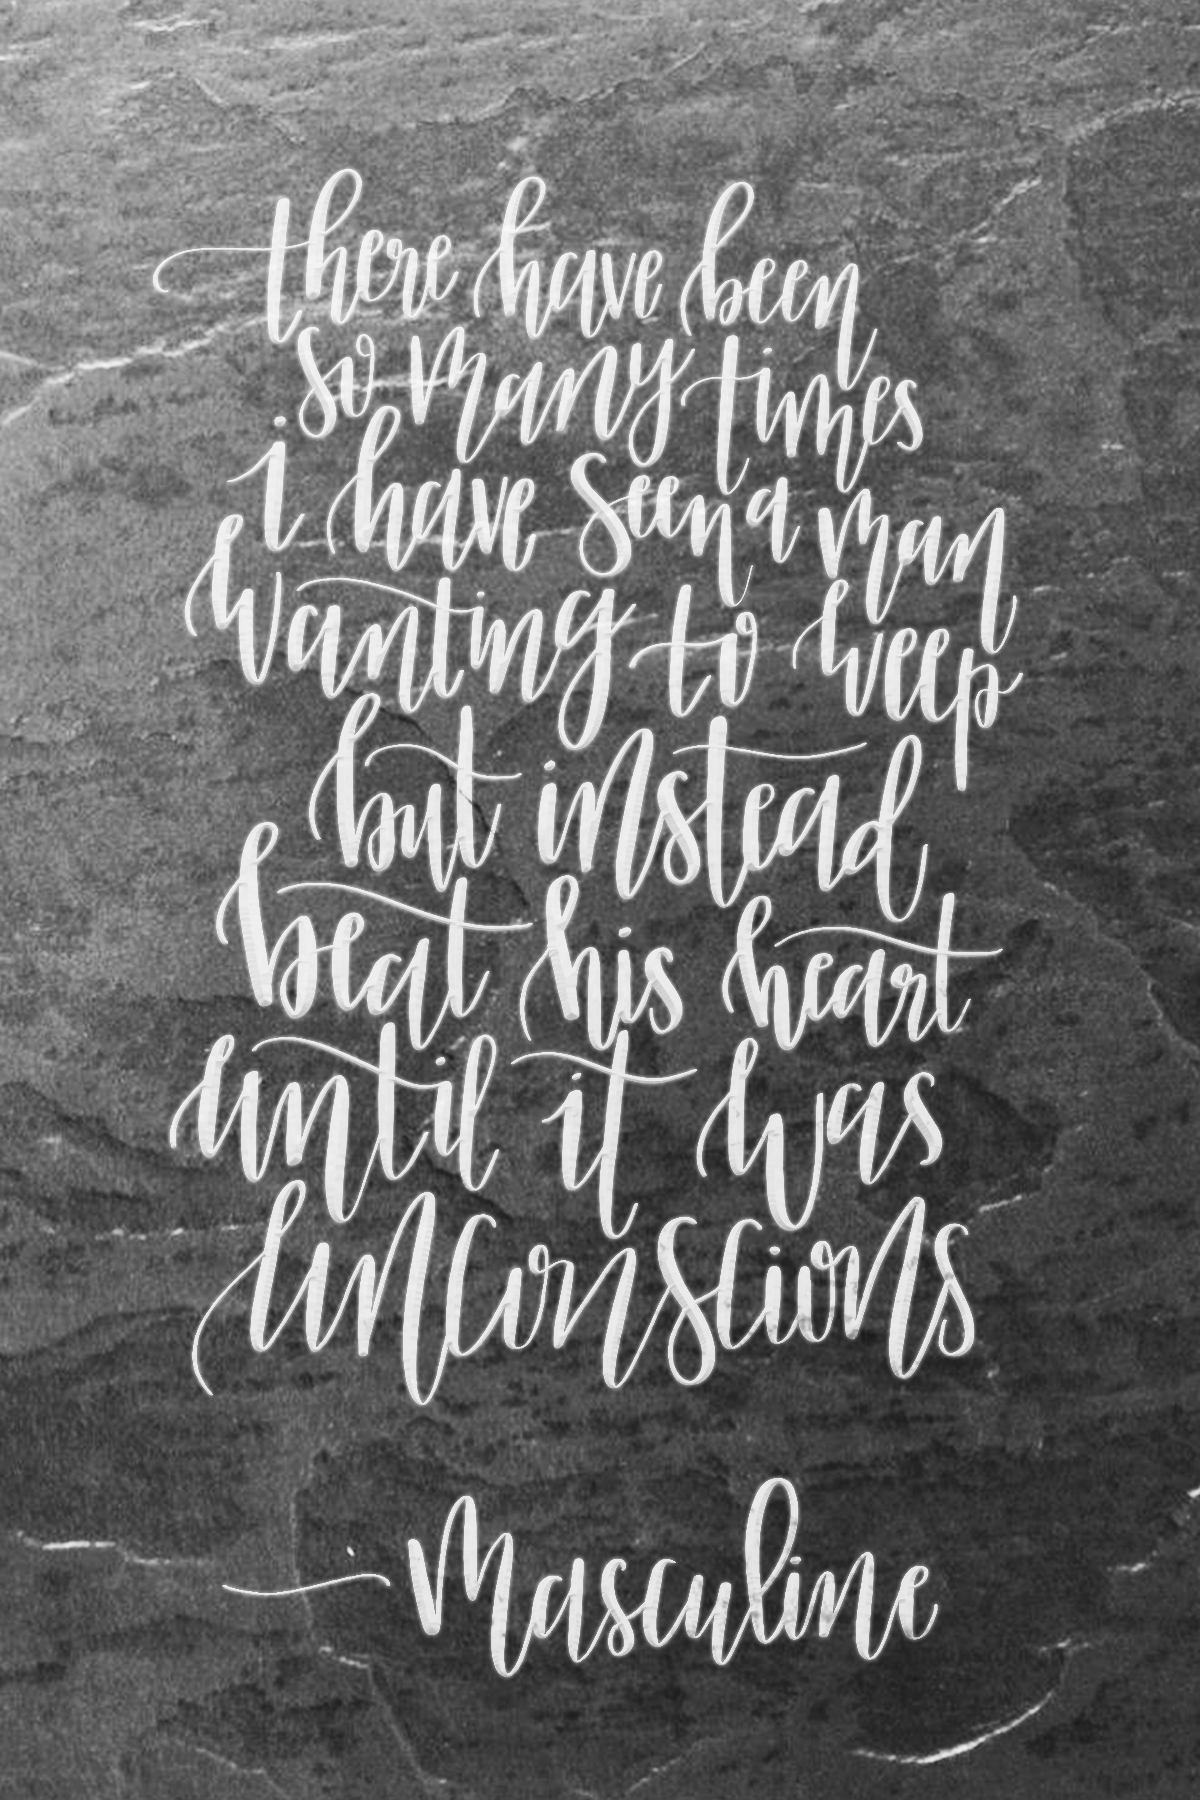 there have been
so many times
i have seen a man
wanting to weep
but instead
beat his heart
until it was
unconscious
— masculine